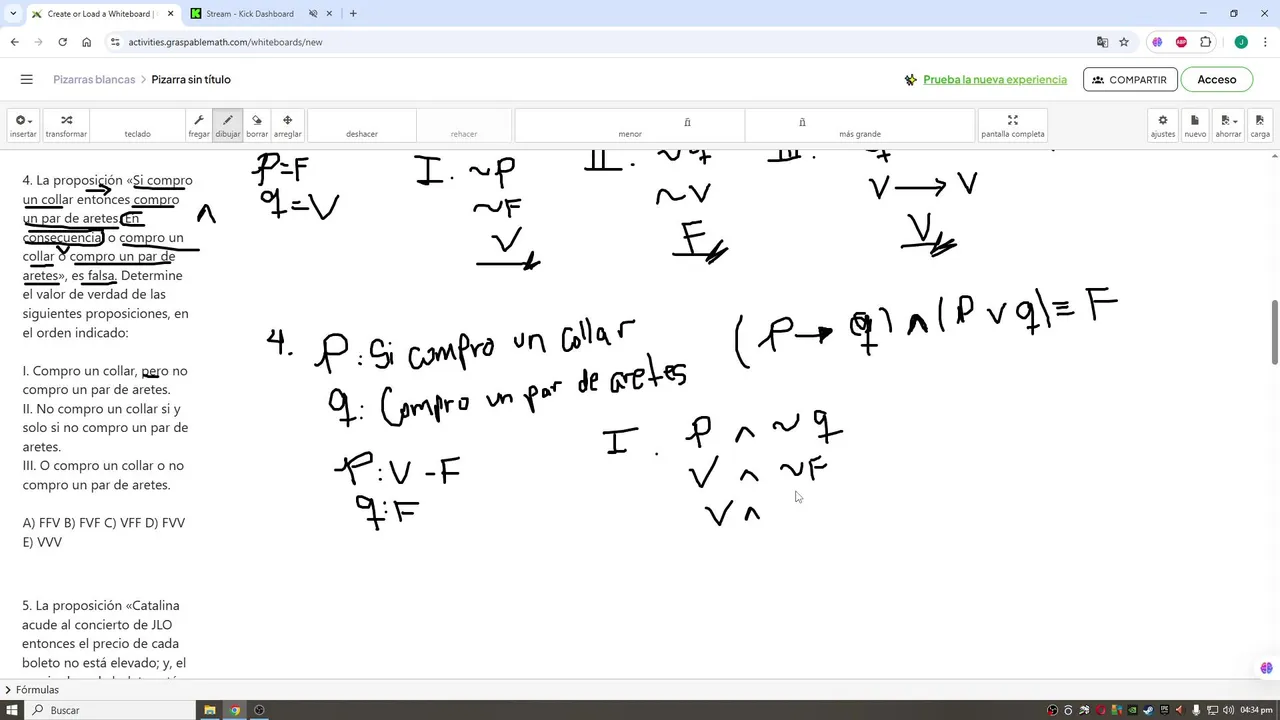 Create or Load a Whiteboard |
Stream - Kick Dashboard
activities.graspablemath.com/whiteboards/new
Pizarras blancas > Pizarra sin título
Prueba la nueva experiencia
COMPARTIR
Acceso
insertar transformar teclado fregar dibujar borrar arreglar deshacer rehacer menor más grande pantalla completa ajustes nuevo ahorrar carga
4. La proposición «Si compro
un collar entonces compro
un par de aretes. En
consecuencia o compro un
collar o compro un par de
aretes», es falsa. Determine
el valor de verdad de las
siguientes proposiciones, en
el orden indicado:
I. Compro un collar, pero no
compro un par de aretes.
II. No compro un collar si y
solo si no compro un par de
aretes.
III. O compro un collar o no
compro un par de aretes.
A) FFV B) FVF C) VFF D) FVV
E) VVV
5. La proposición «Catalina
acude al concierto de JLO
entonces el precio de cada
boleto no está elevado; y, el
→
∧
v
P=F
q=V
I. ~P
~F
V
II. ~q
~V
F
III.
V → V
V
4. P: Si compro un collar
q: Compro un par de aretes
(P → q) ∧ (P v q) ≡ F
P: V - F
q: F
I. P ∧ ~ q
V ∧ ~F
V ∧
Fórmulas
Buscar
04:34 pm